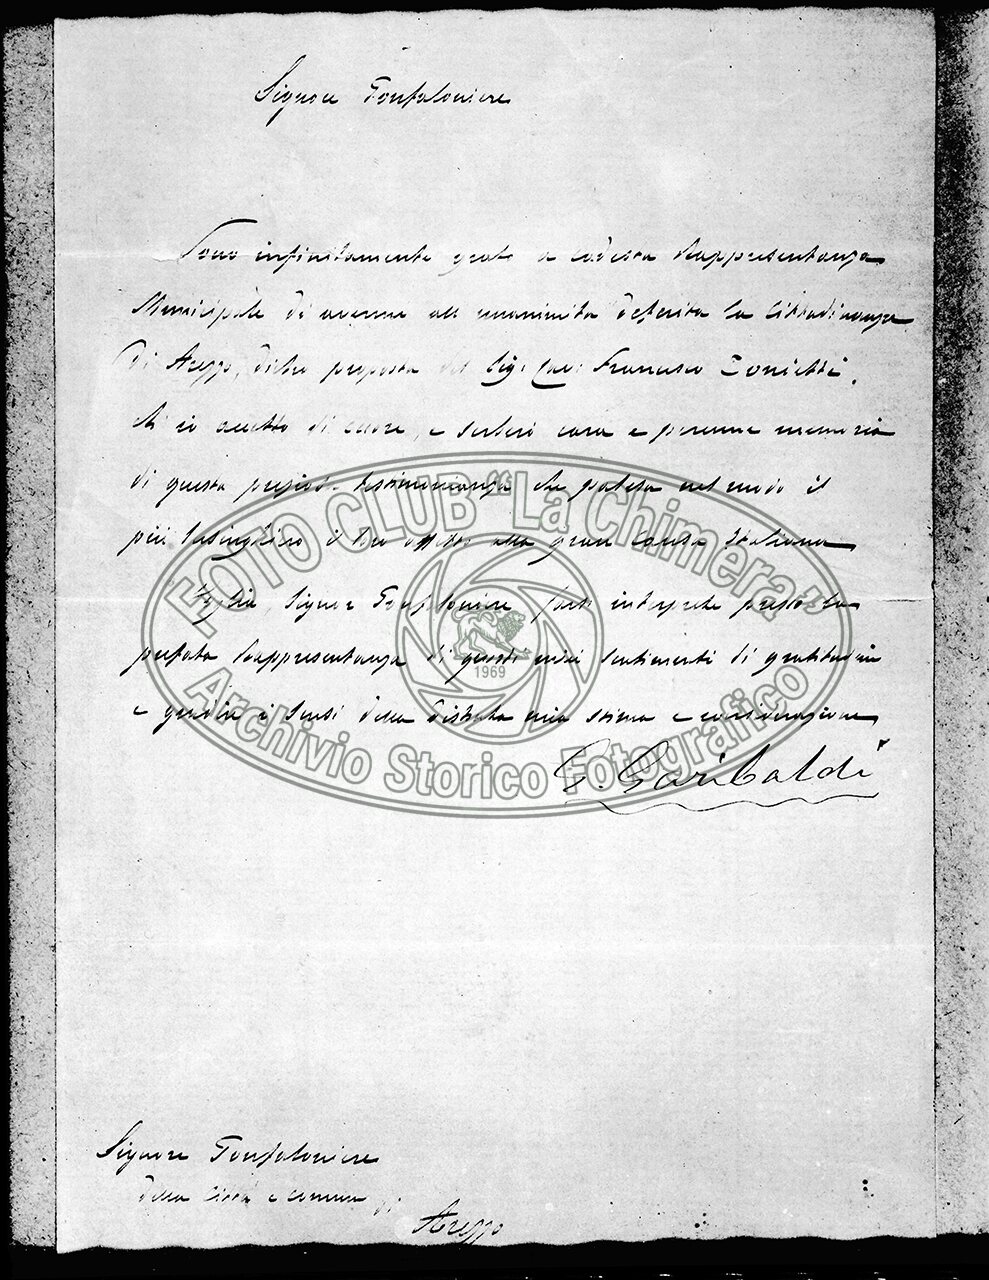 Signore Gonfaloniere
Sono infinitamente grato a codesta Rappresentanza
Municipale di avermi all unanimità deferita la Cittadinanza
di Arezzo, dietro proposta del Sig. Cav. Francesco
io accetto di cuore, e serberò cara e perenne memoria
di questa preziosa testimonianza che palesa nel modo il
più lusinghiero il suo affetto alla gran Causa Italiana
Voglia, Signor Gonfaloniere farsi interprete presso la
prefata Rappresentanza di questi miei sentimenti di gratitudine
e gradire i sensi della distinta mia stima e considerazione
G. Garibaldi
FOTO CLUB "La Chimera"
1969
Archivio Storico Fotografico
Signore Gonfaloniere
della Città e comune di
Arezzo